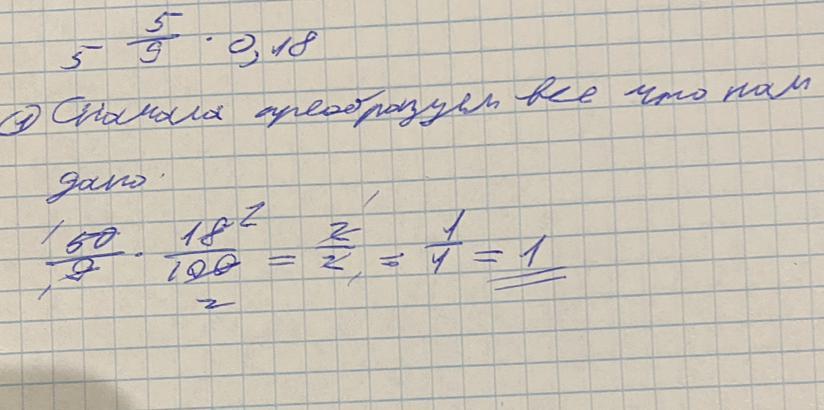 5 5/9 · 0,18
1) Сначала преобразуем все что нам
дано.
50/9 · 18/100 = 2/2 = 1/1 = 1